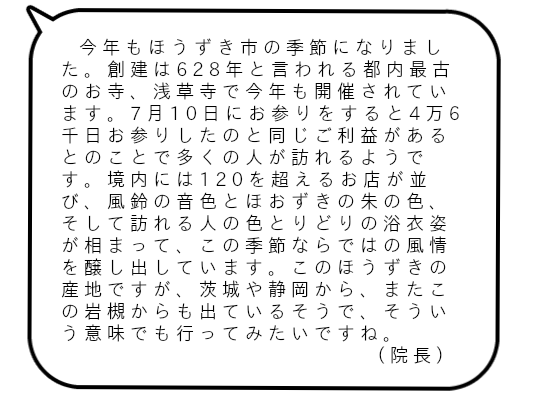 今年もほうずき市の季節になりまし
た。創建は628年と言われる都内最古
のお寺、浅草寺で今年も開催されてい
ます。7月10日にお参りをすると4万6
千日お参りしたのと同じご利益がある
とのことで多くの人が訪れるようで
す。境内には120を超えるお店が並
び、風鈴の音色とほおずきの朱の色、
そして訪れる人の色とりどりの浴衣姿
が相まって、この季節ならではの風情
を醸し出しています。このほうずきの
産地ですが、茨城や静岡から、またこ
の岩槻からも出ているそうで、そうい
う意味でも行ってみたいですね。
（院長）